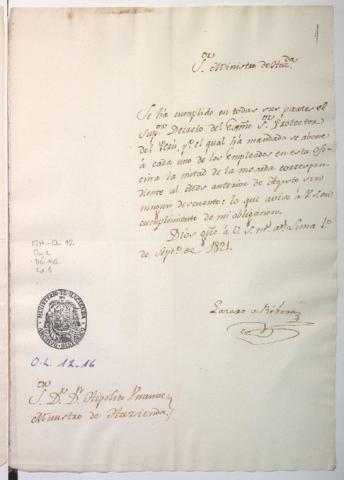 S.or Ministro de Haz.da
Se ha cumplido en todas sus partes el
Sup.or Decreto del Exmo S.or Protector
del Perú, p.r el qual ha mandado se abone
á cada uno de los empleados en esta Ofi-
cina la mitad de la mesada correspon-
diente al mes anterior de Agosto sin
ningun descuento: lo que aviso á V.S. en
cumplimiento de mi obligacion.
Dios gue á U.S. m.s a.s Lima 1.o
de Sept.e de 1821.
Lazaro de Ribera
MH-OL 12
Caja 2
Doc 16
Fo 1
MINISTERIO DE HACIENDA
O.L. 12-16
S.or D.r D.n Hipolito Unanue
Ministro de Hazienda